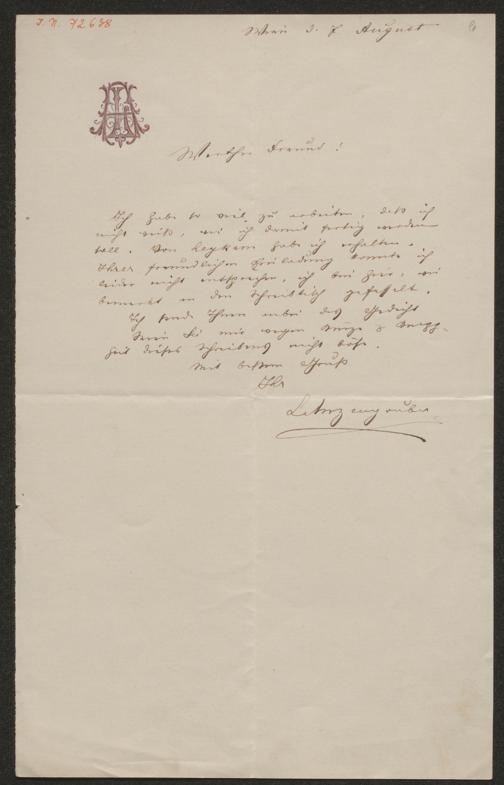 I. N. 72638
Wien d. 7 August
Werther Freund!
Ich habe so viel zu arbeiten, daß ich
nicht weiß, wie ich damit fertig werden
soll. Von Leykam habe ich erhalten.
Ihrer freundlichen Einladung konnte ich
leider nicht entsprechen, ich bin hier, wie
bemerkt an den Schreibtisch gefesselt.
Ich sende Ihnen anbei das Gedicht
Seien Sie mir wegen Kürze &
heit dieses Schreibens nicht böse.
Mit bestem Gruß
Ihr
LAnzengruber